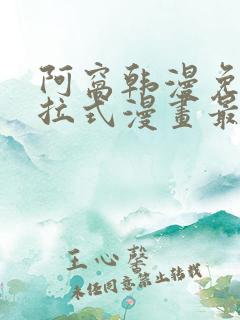 阿窩韩漫免
拉式漫畫最
王心馨
未经同意禁止转载